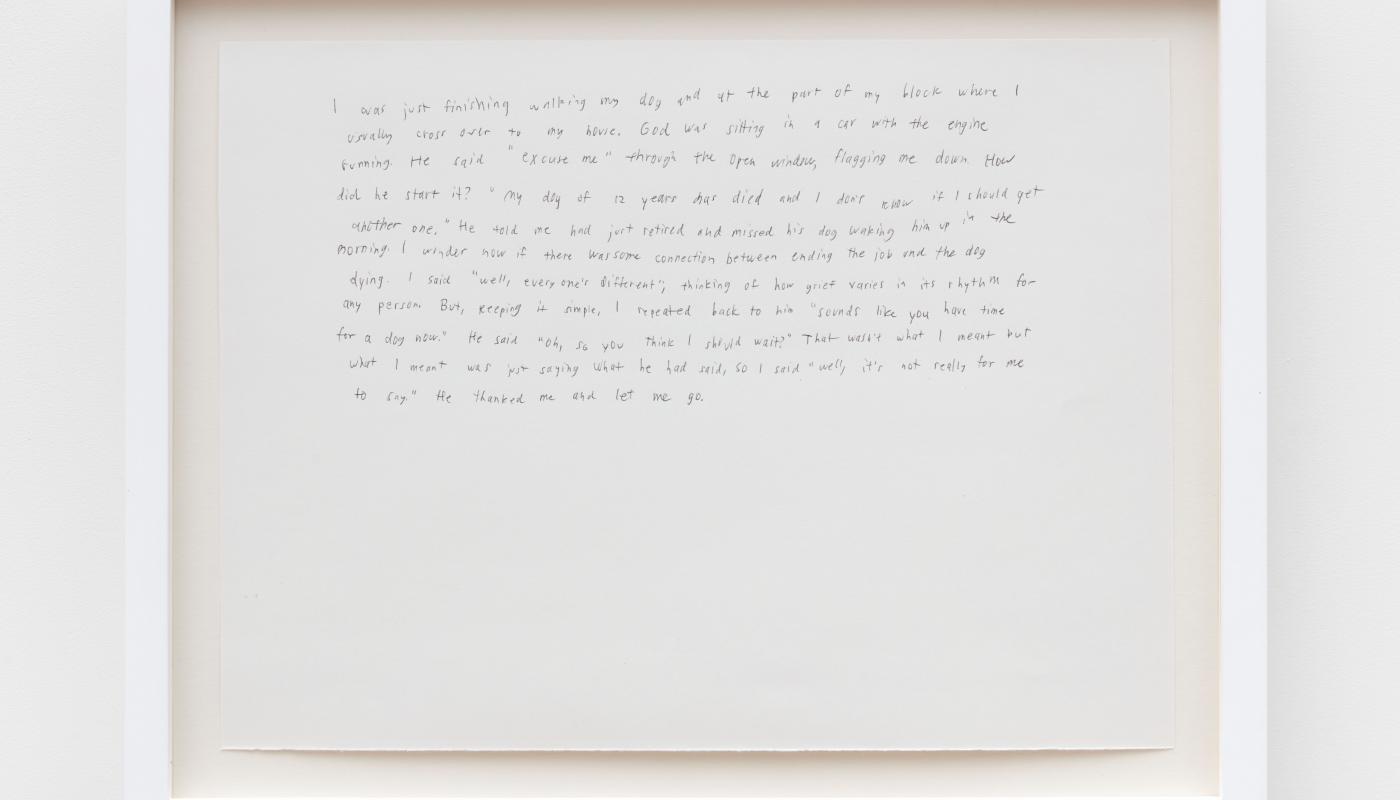 I was just finishing walking my dog and at the part of my block where I
usually cross over to my house. God was sitting in a car with the engine
running. He said "excuse me" through the open window, flagging me down. How
did he start it? "My dog of 12 years has died and I don't know if I should get
another one." He told me had just retired and missed his dog waking him up in the
morning. I wonder now if there was some connection between ending the job and the dog
dying. I said "well, every one's different", thinking of how grief varies in its rhythm for
any person. But, keeping it simple, I repeated back to him "sounds like you have time
for a dog now." He said "oh, so you think I should wait?" That wasn't what I meant but
what I meant was just saying what he had said, so I said "well, it's not really for me
to say." He thanked me and let me go.